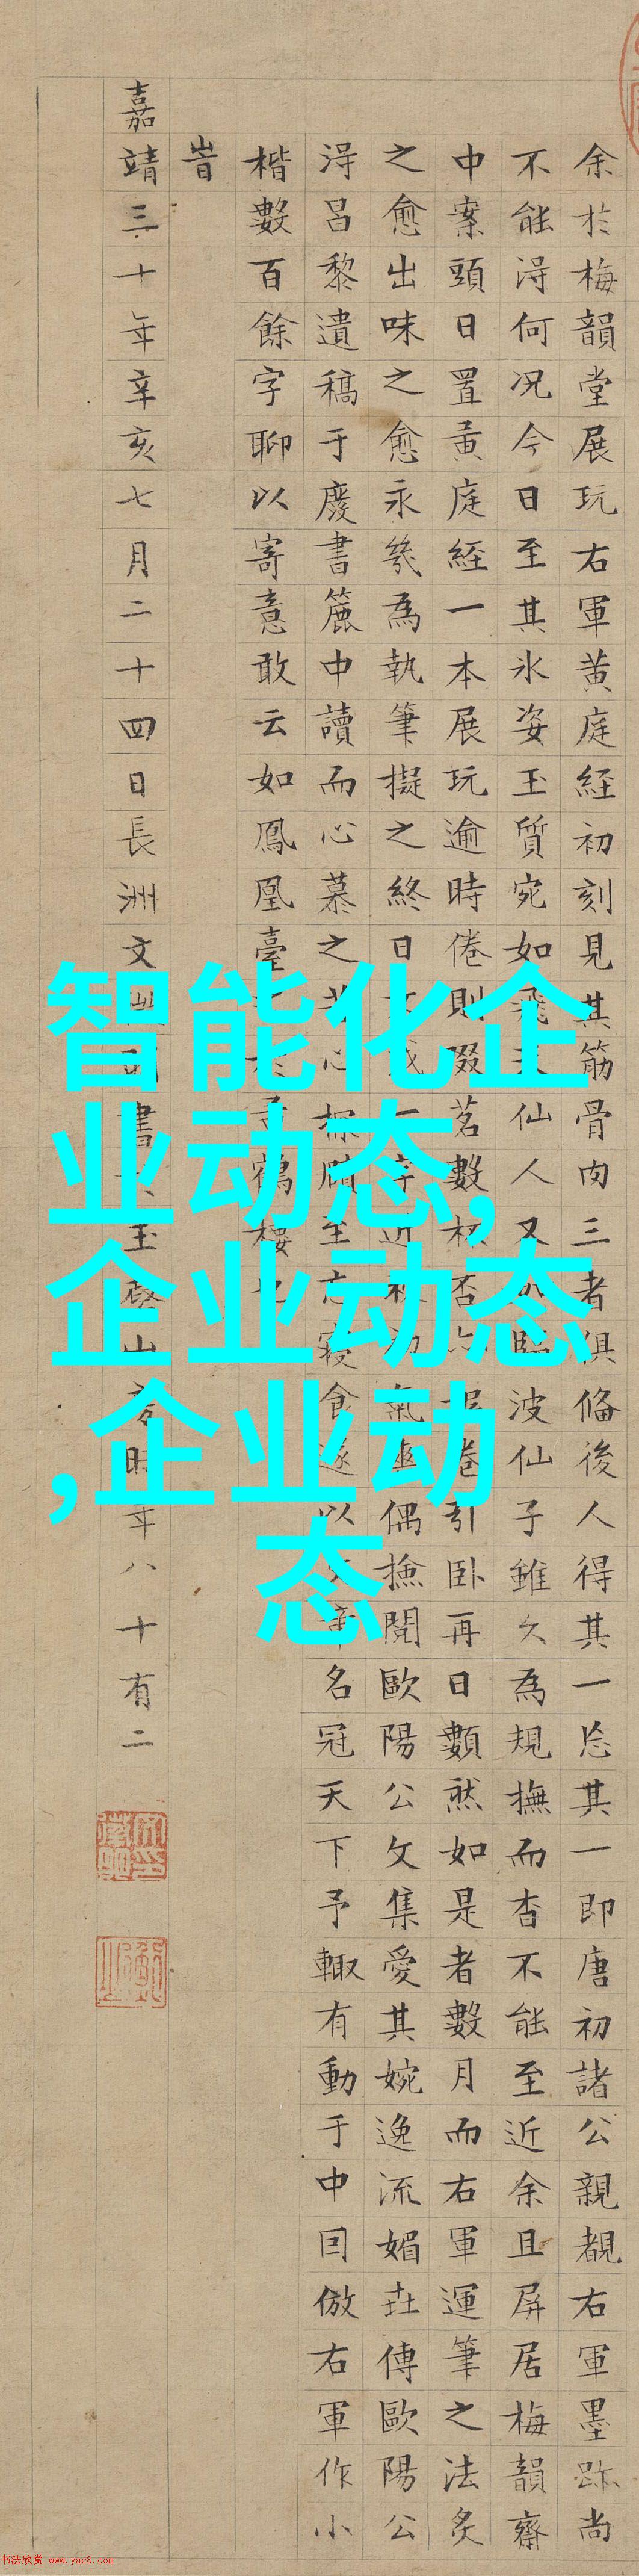 余於梅韻堂展玩右軍黃庭經初刻見其筋骨肉三者俱俻後人得其一忘其一即唐初諸公親覩右軍墨跡尚
不能淂何况今日至其氷姿玉質宛如飛天仙人又如臨波仙子雖久為規撫而杳不能至近余且屏居梅韻齋
中案頭日置黃庭経一本展玩逾時倦則啜茗數杯否卷引卧再日數然如是者數月而右軍運筆之法炙
之愈出味之愈永幾為執筆擬之終日偶撿閱歐陽公文集愛其婉逸流媚弆傳歐陽公
淂呂黎遺稿于廢書簏中讀而心慕之苦心探賾至忘寢食遂以文章名冠天下予輙有動于中囙倣右軍作小
楷數百餘字聊以寄意敢云如鳳凰臺鶴楼也
旹
嘉靖三十年辛亥七月二十四日長洲文書玉磬山房時年八十有二
智能化企
业动态,
企业动态
,企业动
态
书法欣赏 www.yac8.com